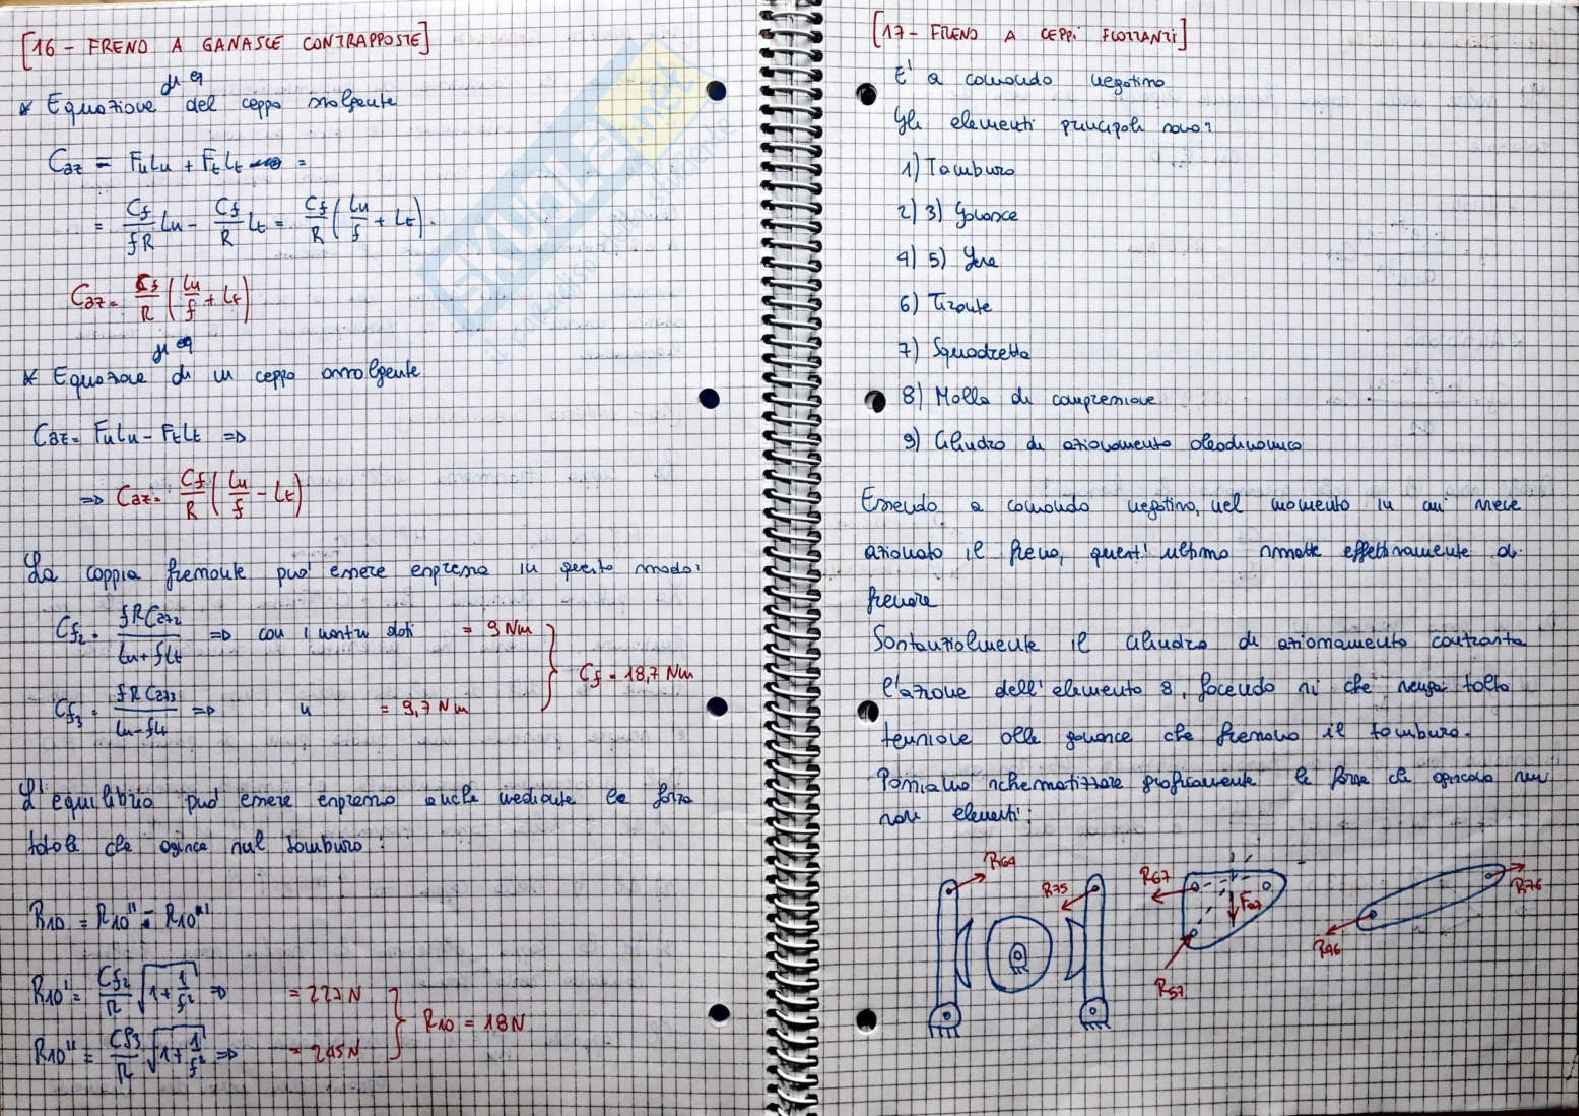 [16 - FRENO A GANASCE CONTRAPPOSTE]
di eq
* Equazione del ceppo svolgente
Caz = FuLu + FtLt =
= Cf/fR Lu - Cf/R Lt = Cf/R (Lu/f + Lt).
Caz = Cf/R (Lu/f + Lt)
di eq
* Equazione di un ceppo avvolgente
Caz = FuLu - FtLt =>
=> Caz = Cf/R (Lu/f - Lt)
La coppia frenante può essere espressa in questo modo:
Cf2 = fRCaz2/(Lu+fLt) => con i nostri dati = 9 Nm
Cf = 18,7 Nm
Cf3 = fRCaz3/(Lu-fLt) => " = 9,7 Nm
L'equilibrio può essere espresso anche mediante la forza
totale che agisce sul tamburo:
R10 = R10'' - R10'
R10' = Cf2/R √(1+1/f²) => = 227 N
R10 = 18 N
R10'' = Cf3/R √(1+1/f²) => = 245 N
[17 - FRENO A CEPPI FLOTTANTI]
E' a comando negativo
Gli elementi principali sono:
1) Tamburo
2) 3) Ganasce
4) 5) Leve
6) Tirante
7) Squadretta
8) Molla di compressione
9) Cilindro di azionamento oleodinamico
Essendo a comando negativo, nel momento in cui viene
azionato il freno, quest'ultimo smette effettivamente di
frenare
Sostanzialmente il cilindro di azionamento contrasta
l'azione dell'elemento 8, facendo sì che venga tolta
tensione alle ganasce che frenano il tamburo.
Possiamo schematizzare graficamente le forze che agiscono sui
vari elementi:
R64
R75
R67
F87
R57
R76
R46